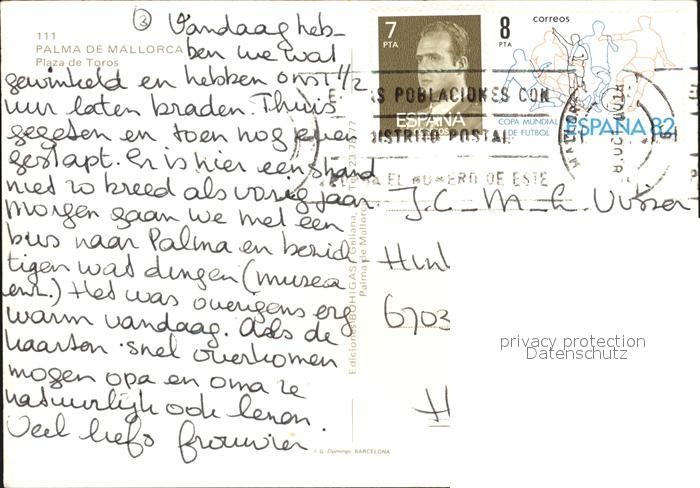 ③ Vandaag heb-
111
PALMA DE MALLORCA
Plaza de Toros
ben we wat
gewinkeld en hebben ons 1 1/2
uur laten braden. Thuis
gegeten en toen nog even
gestapt. Er is hier een strand
niet zo breed als vorig jaar.
Morgen gaan we met een
bus naar Palma en bezich
tigen wat dingen (musea
enz.) Het was overigens erg
warm vandaag. Als de
kaarten snel overkomen
mogen opa en oma ze
natuurlijk ook lezen.
Veel liefs
7
PTA
ESPAÑA
8
PTA
correos
COPA MUNDIAL
DE FUTBOL
ESPAÑA 82
POBLACIONES CON
DISTRITO POSTAL
EL NUMERO DE ESTE
MALLORCA
J.C. M. G. Visser
6703
H
Ediciones BOHIGAS
Palma de Mallorca
I. G. Domingo BARCELONA
privacy protection
Datenschutz